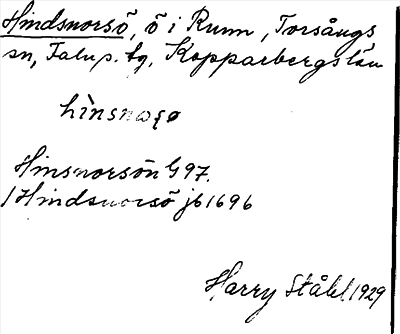 Hindsnorsö, ö i Runn, Torsångs
sn, Falu s. tg, Kopparbergs län
hìnsnoʂø
Hinsnorsön G 97.
/Hindsnorsö jb 1696
Harry Ståhl 1929